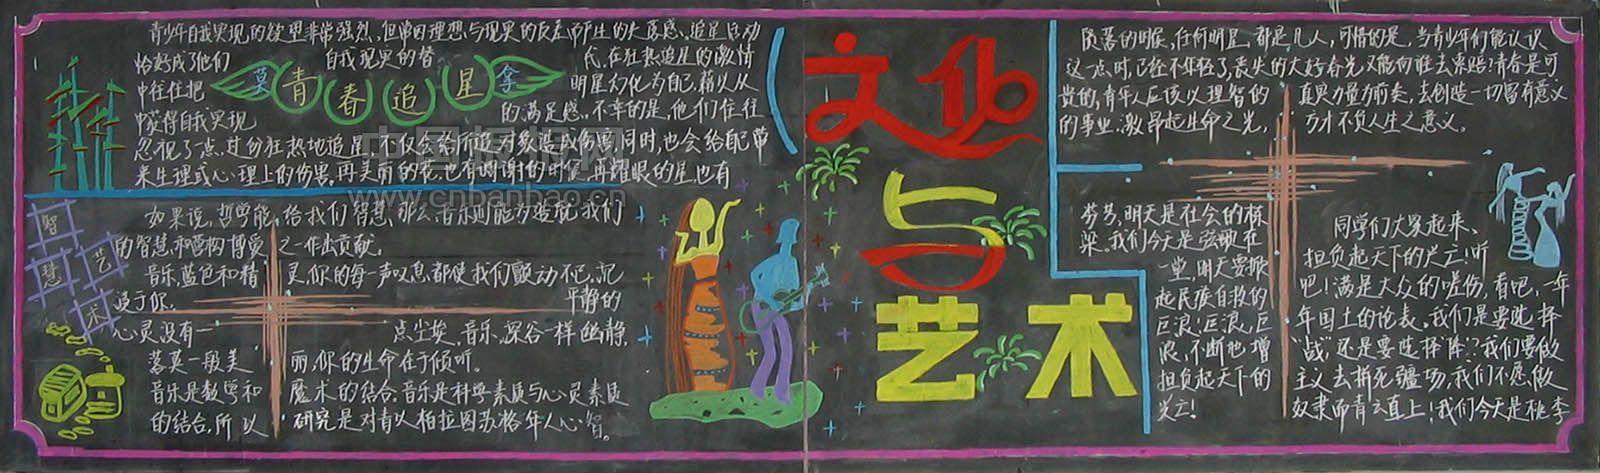 青少年自我实现的欲望非常强烈，但常因理想与现实的反差而产生的失落感，追星活动
恰好成了他们 自我现累的督 代，在狂热追星的激情
中往往把 明星幻化为自己，藉以从
莫青春追星拿
中获得自我实现 的满足感。不幸的是，他们往往
忽视了点，过份狂热地追星，不仅会给所追对象造成伤害，同时，也会给自己带
来生理或心理上的伤害。再美丽的花，也有凋谢的时候，再耀眼的星也有
智慧艺术
如果说，哲学能给我们智慧，那么音乐则能为造就我们
的智慧和营构博爱之一作出贡献。
音乐，蓝色和精灵，你的每一声叹息，都使我们颤动不已，沉
浸于你， 平静的
心灵没有一 点尘埃，音乐，深谷一样幽静，
落莫一般美 丽，你的生命在于倾听。
音乐是数学和 魔术的结合，音乐是科学素质与心灵素质
的结合，所以 研究是对青以柏拉图苏格年人心智。
文化
与
艺术
陨落的时候，任何明星，都是凡人，可惜的是，当青少年们能认识
这一点时，已经不年轻了，丧失的大好春光又能向谁去索赔？青春是可
贵的，青年人应该以理智的 真实力量为前奏，去创造一切富有意义
的事业，激昂起生命之光， 方才不负人生之意义。
芬芳，明天是社会的栋
梁。我们今天是弦歌在
一堂，明天要掀
起民族自救的
巨浪！巨浪，巨
浪，不断地增
担负起天下的
兴亡！
同学们大家起来，
担负起天下的兴亡！听
吧！满是大众的嗟伤，看吧，一年
年国土的论丧。我们是要选择
“战”还是要选择“降”？我们要做
主义去拼死疆场，我们不愿做
奴隶而青云直上！我们今天是桃李
中国板报网
www.cnbanbao.cn